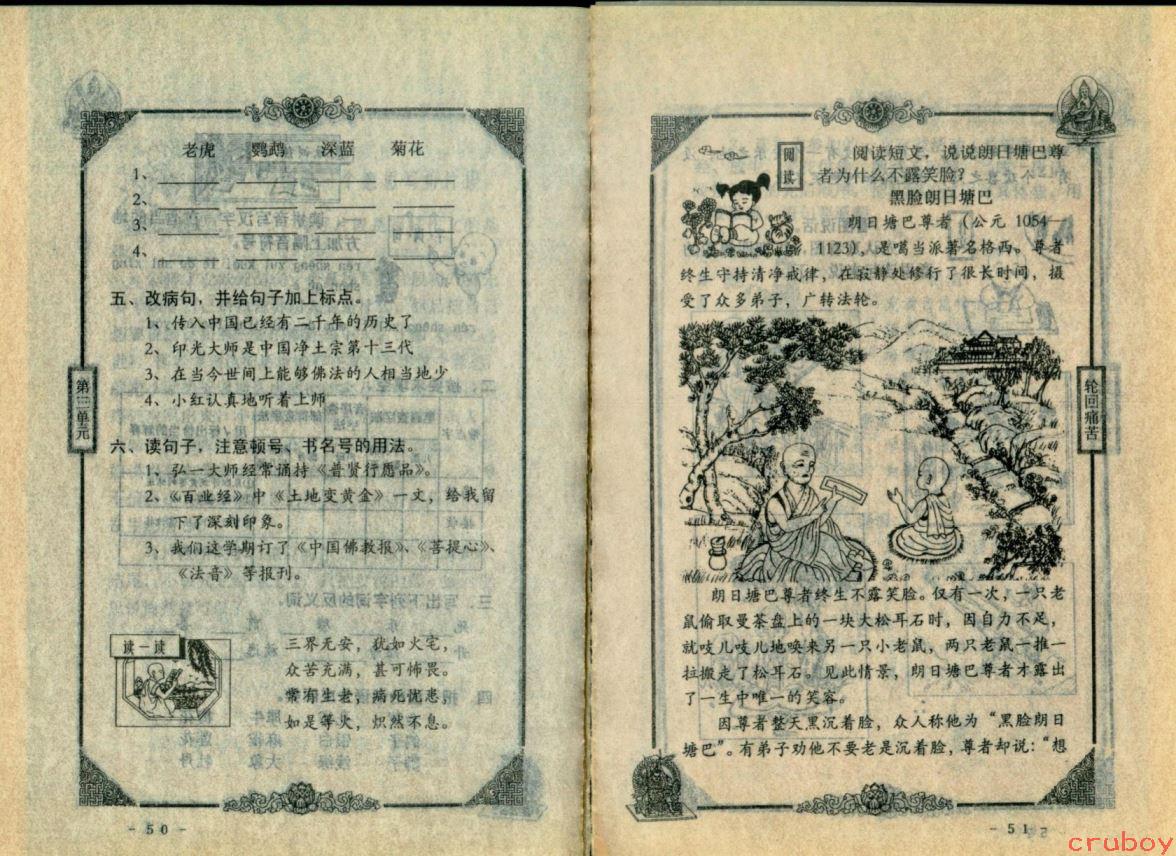 老虎 鹦鹉 深蓝 菊花
1、
2、
3、
4、
五、改病句，并给句子加上标点。
1、传入中国已经有二千年的历史了
2、印光大师是中国净土宗第十三代
3、在当今世间上能够佛法的人相当地少
4、小红认真地听着上师
六、读句子，注意顿号、书名号的用法。
1、弘一大师经常诵持《普贤行愿品》。
2、《百业经》中《土地变黄金》一文，给我留
下了深刻印象。
3、我们这学期订了《中国佛教报》、《菩提心》、
《法音》等报刊。
读一读
三界无安，犹如火宅，
众苦充满，甚可怖畏。
常有生老，病死忧患，
如是等火，炽然不息。
第二单元
- 50 -
阅读
阅读短文，说说朗日塘巴尊
者为什么不露笑脸？
黑脸朗日塘巴
朗日塘巴尊者（公元 1054—
1123），是噶当派著名格西。尊者
终生守持清净戒律，在寂静处修行了很长时间，摄
受了众多弟子，广转法轮。
朗日塘巴尊者终生不露笑脸。仅有一次，一只老
鼠偷取曼茶盘上的一块大松耳石时，因自力不足，
就吱儿吱儿地唤来另一只小老鼠，两只老鼠一推一
拉搬走了松耳石。见此情景，朗日塘巴尊者才露出
了一生中唯一的笑容。
因尊者整天黑沉着脸，众人称他为“黑脸朗日
塘巴”。有弟子劝他不要老是沉着脸，尊者却说：“想
轮回痛苦
- 51
cruboy